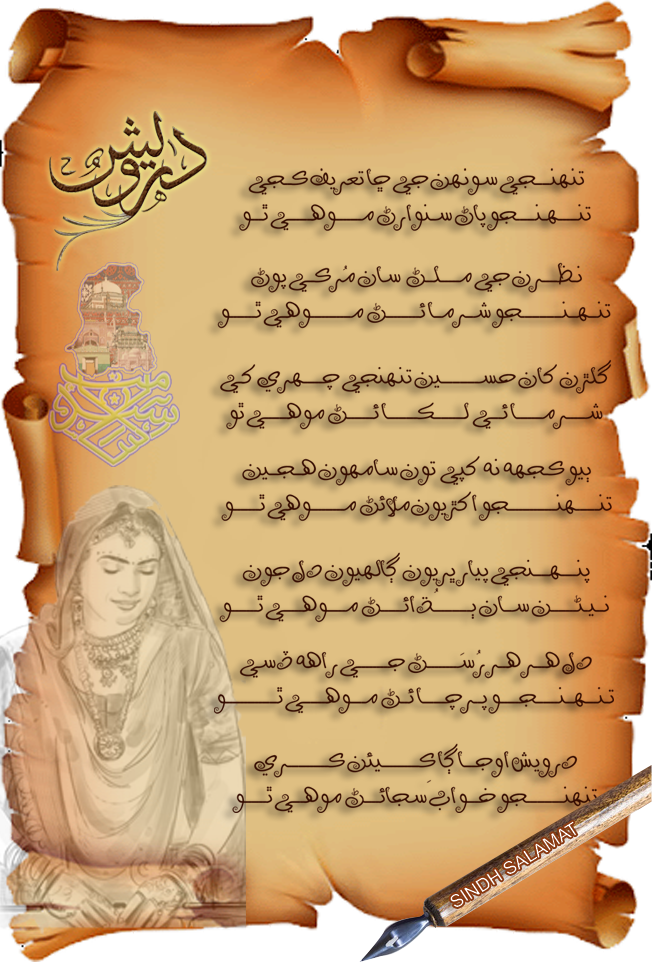 درويش
تنهنجي سونهن جي ڇا تعريف ڪجي
تنهنجو پاڻ سنوارڻ موهي ٿو
نظرن جي ملڻ سان مُرڪي پوڻ
تنهنجو شرمائڻ موهي ٿو
گلڙن کان حسين تنهنجي چهري کي
شرمائي لڪائڻ موهي ٿو
ٻيو ڪجهه نه کپي تون سامهون هجين
تنهنجو اکڙيون ملائڻ موهي ٿو
پنهنجي پيار ڀريون ڳالهيون دل جون
نيڻن سان ٻُڌائڻ موهي ٿو
دل هر هر رُسَڻ جي راهه ڏسي
تنهنجو پرچائڻ موهي ٿو
درويش اوجاڳا ڪيئن ڪري
تنهنجو خواب سَجائڻ موهي ٿو
SINDH SALAMAT